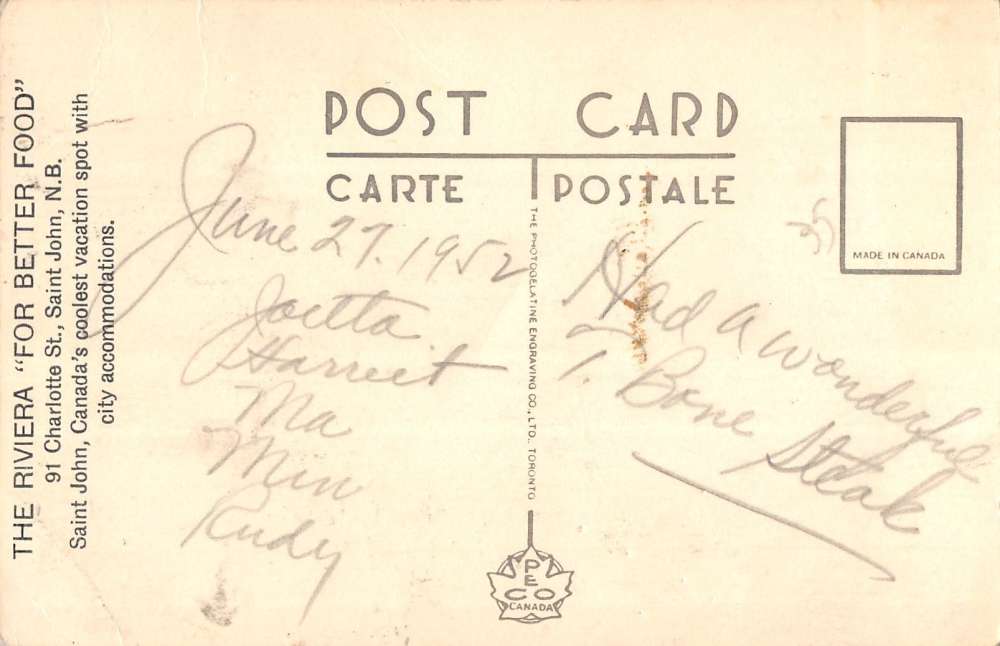 THE RIVIERA "FOR BETTER FOOD"
91 Charlotte St., Saint John, N.B.
Saint John, Canada's coolest vacation spot with
city accommodations.
POST CARD
CARTE POSTALE
June 27. 1952
Joetta
Harriet
Ma
Min
Rudy
THE PHOTOGELATINE ENGRAVING CO., LTD., TORONTO
PECO
CANADA
MADE IN CANADA
Had a wonderful
T. Bone Steak